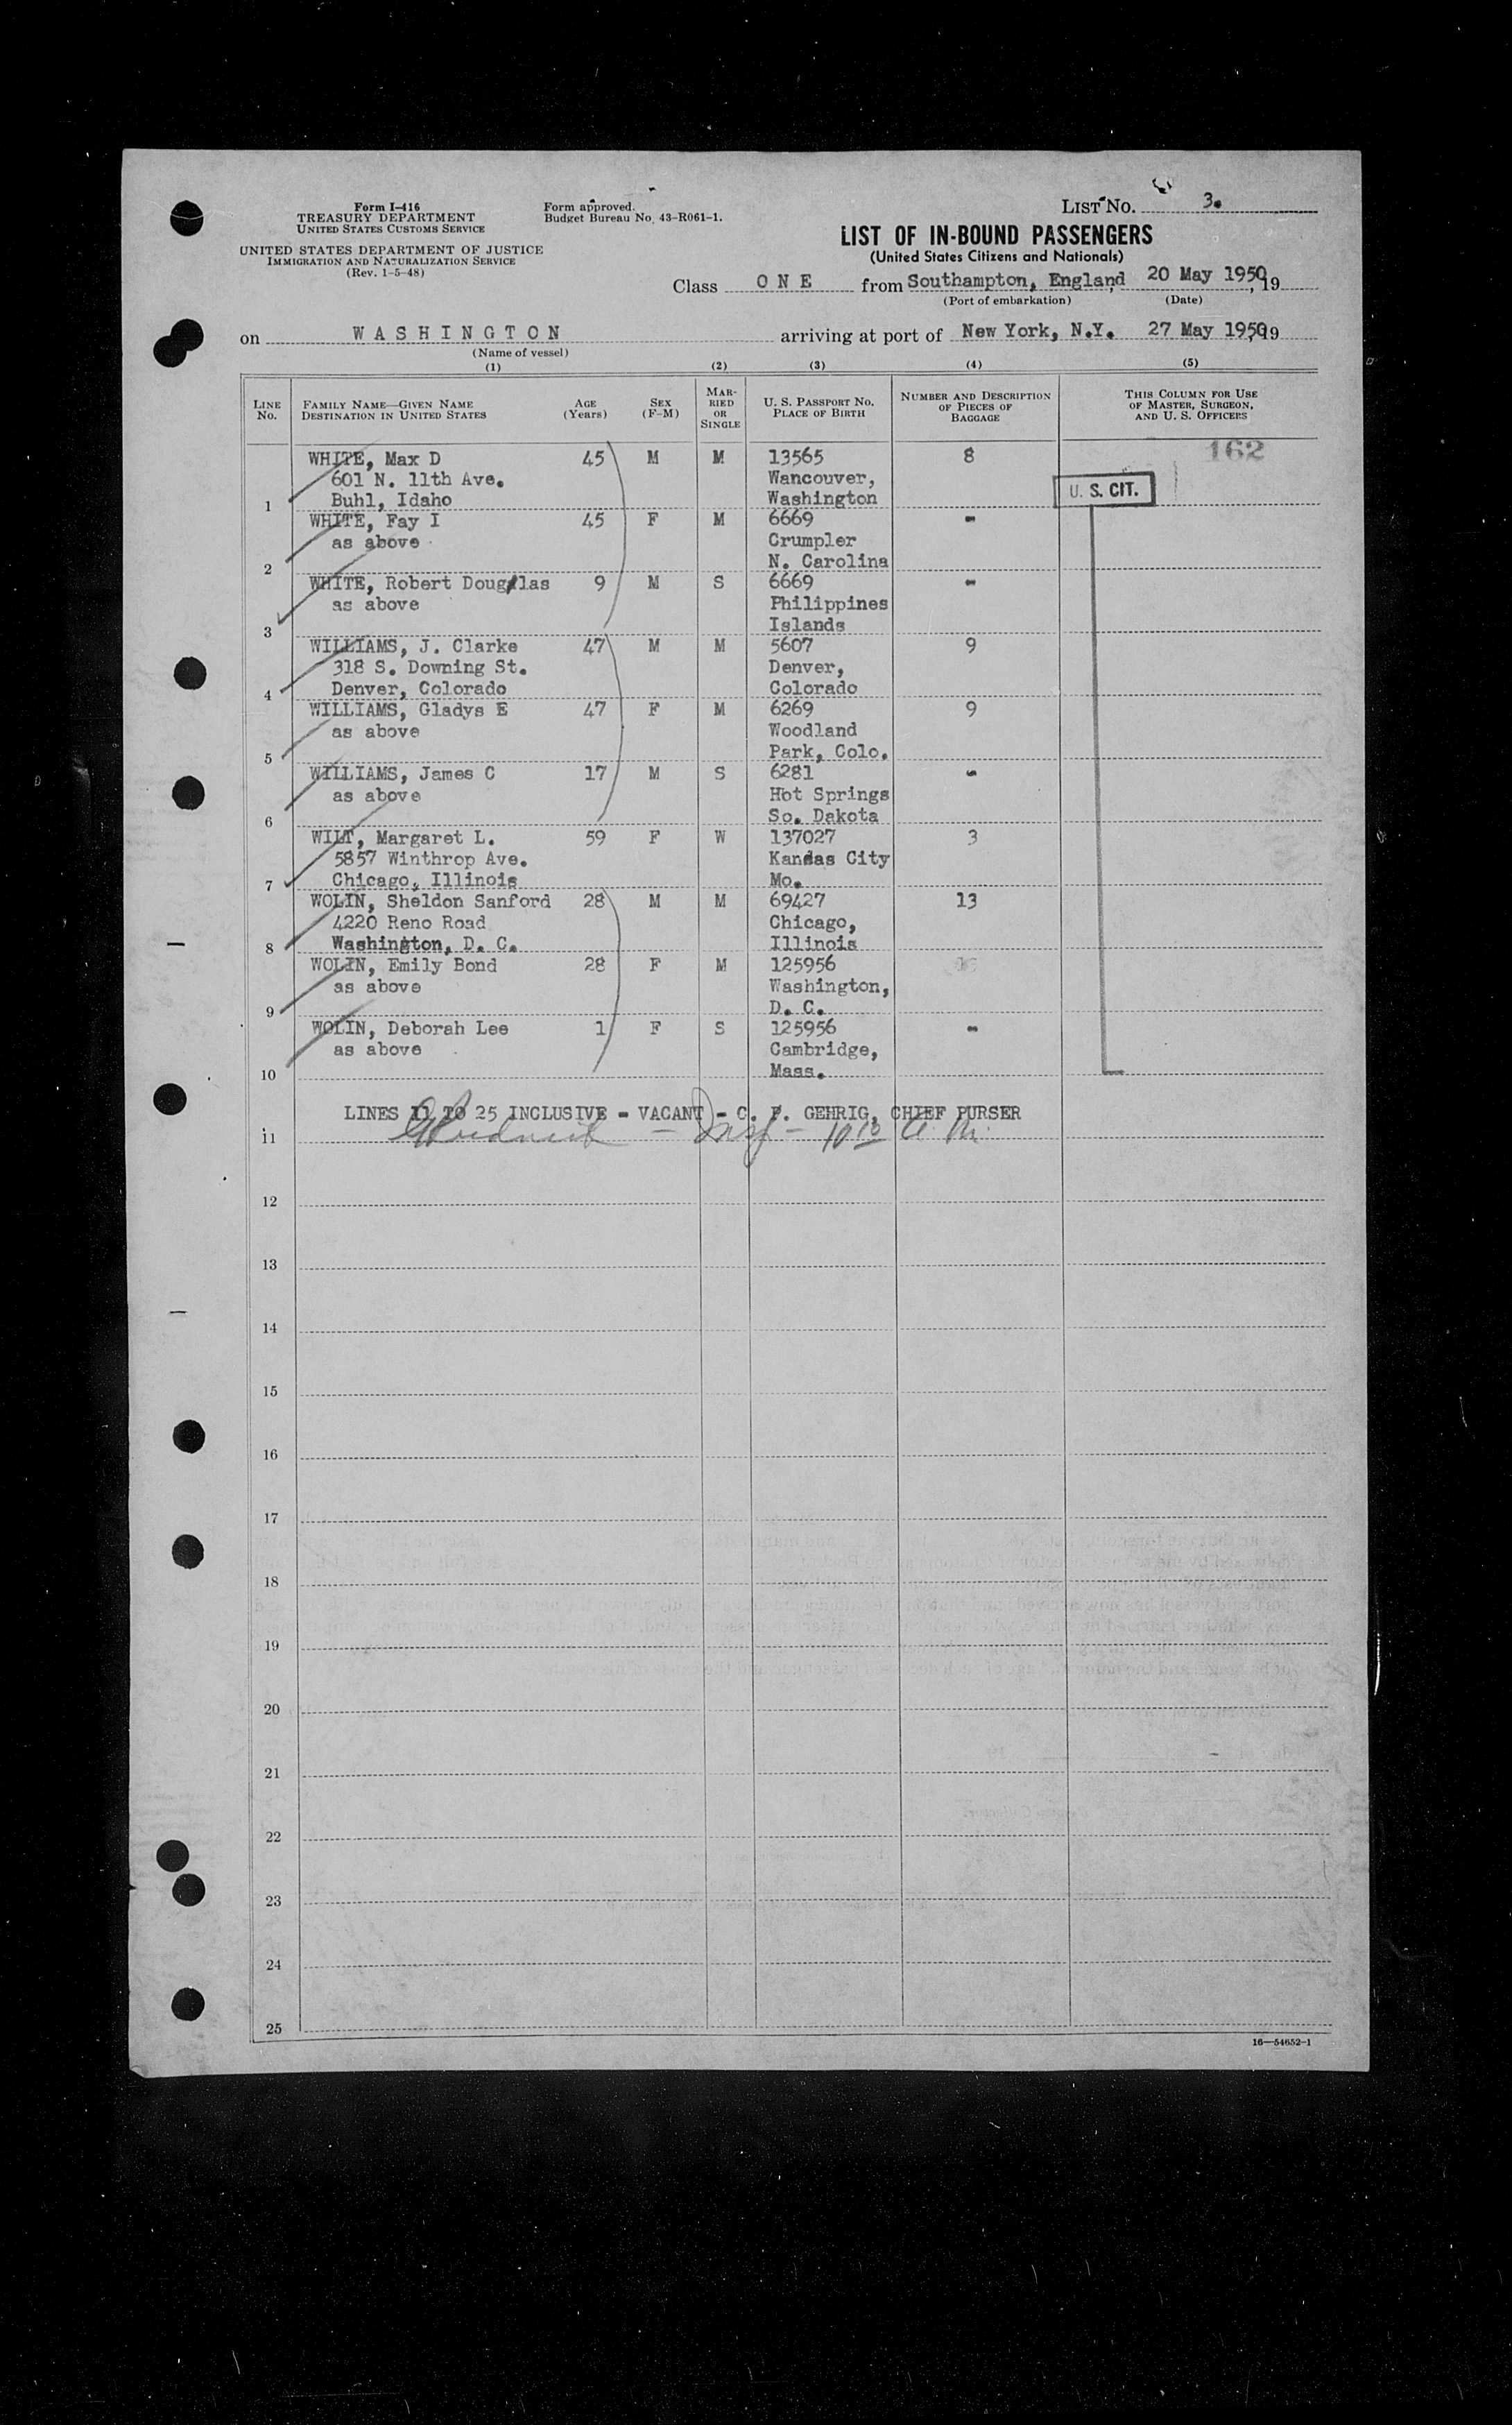 Form I-416
TREASURY DEPARTMENT
UNITED STATES CUSTOMS SERVICE
UNITED STATES DEPARTMENT OF JUSTICE
IMMIGRATION AND NATURALIZATION SERVICE
(Rev. 1-5-48)
Form approved.
Budget Bureau No. 43-R061-1.
LIST No. 3.
LIST OF IN-BOUND PASSENGERS
(United States Citizens and Nationals)
Class O N E from Southampton, England, 20 May 1950, 19
(Port of embarkation) (Date)
on W A S H I N G T O N arriving at port of New York, N.Y. 27 May 1950, 19
(Name of vessel)
(1) (2) (3) (4) (5)
LINE No. FAMILY NAME—GIVEN NAME DESTINATION IN UNITED STATES AGE (Years) SEX (F-M) MARRIED OR SINGLE U. S. PASSPORT NO. PLACE OF BIRTH NUMBER AND DESCRIPTION OF PIECES OF BAGGAGE THIS COLUMN FOR USE OF MASTER, SURGEON, AND U. S. OFFICERS
WHITE, Max D 45 M M 13565 8 162
601 N. 11th Ave. Wancouver, U. S. CIT.
1 Buhl, Idaho Washington
WHITE, Fay I 45 F M 6669 -
as above Crumpler
2 N. Carolina
WHITE, Robert Douglas 9 M S 6669 -
as above Philippines
3 Islands
WILLIAMS, J. Clarke 47 M M 5607 9
318 S. Downing St. Denver,
4 Denver, Colorado Colorado
WILLIAMS, Gladys E 47 F M 6269 9
as above Woodland
5 Park, Colo.
WILLIAMS, James C 17 M S 6281 -
as above Hot Springs
6 So. Dakota
WILT, Margaret L. 59 F W 137027 3
5857 Winthrop Ave. Kandas City
7 Chicago, Illinois Mo.
WOLIN, Sheldon Sanford 28 M M 69427 13
4220 Reno Road Chicago,
8 Washington, D. C. Illinois
WOLIN, Emily Bond 28 F M 125956
as above Washington,
9 D. C.
WOLIN, Deborah Lee 1 F S 125956 -
as above Cambridge,
10 Mass.
LINES 11 TO 25 INCLUSIVE - VACANT - C. F. GEHRIG, CHIEF PURSER
11 - Insp - 10 10 A. M.
12
13
14
15
16
17
18
19
20
21
22
23
24
25
16—54652-1